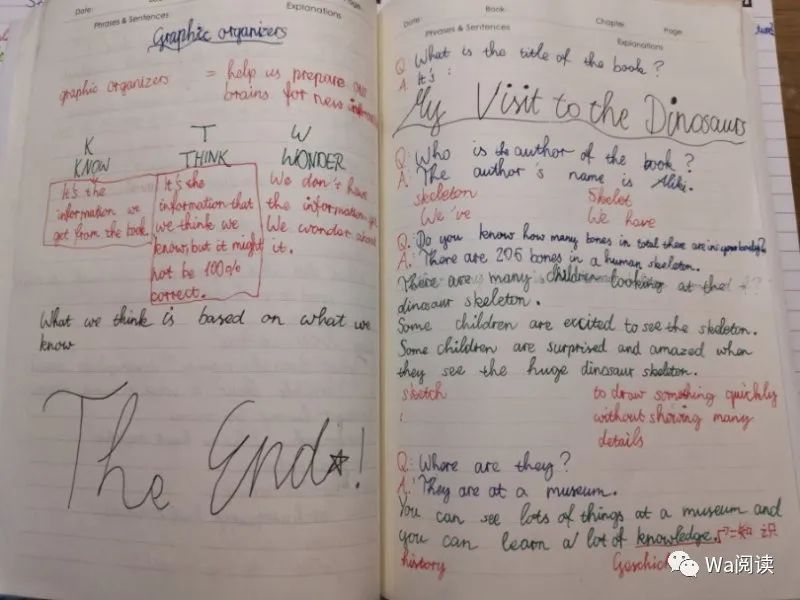 Date:
Phrases & Sentences
Explanations
Page
Graphic organizers
graphic organizers = help us prepare our
brains for new
K T W
KNOW THINK WONDER
It's the
information we
get from the book.
It's the
information that
we think we
know, but it might
not be 100%
correct.
We don't have
the information
We wonder about
it.
What we think is based on what we
know
The End☆!
Date: Book: Chapter: Page
Phrases & Sentences
Explanations
Q: What is the title of the book?
A: It's:
My Visit to the Dinosaurs
Q: Who is the author of the book?
A: The author's name is Aliki.
skeleton Skelet
We've We have
Q: Do you know how many bones in total there are in your body?
A: There are 206 bones in a human skeleton.
There are many children looking at the
dinosaur skeleton.
Some children are excited to see the skeleton.
Some children are surprised and amazed when
they see the huge dinosaur skeleton.
sketch to draw something quickly
: without showing many
details
Q: Where are they?
A: They are at a museum.
You can see lots of things at a museum and
you can learn a lot of knowledge.
history
Wa阅读